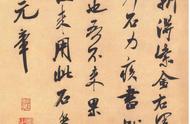 新得紫金右軍
石力疾書
也吾不來果
來用此石矣
元章